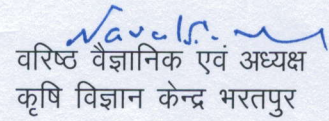 वरिष्ठ वैज्ञानिक एवं अध्यक्ष
कृषि विज्ञान केन्द्र भरतपुर